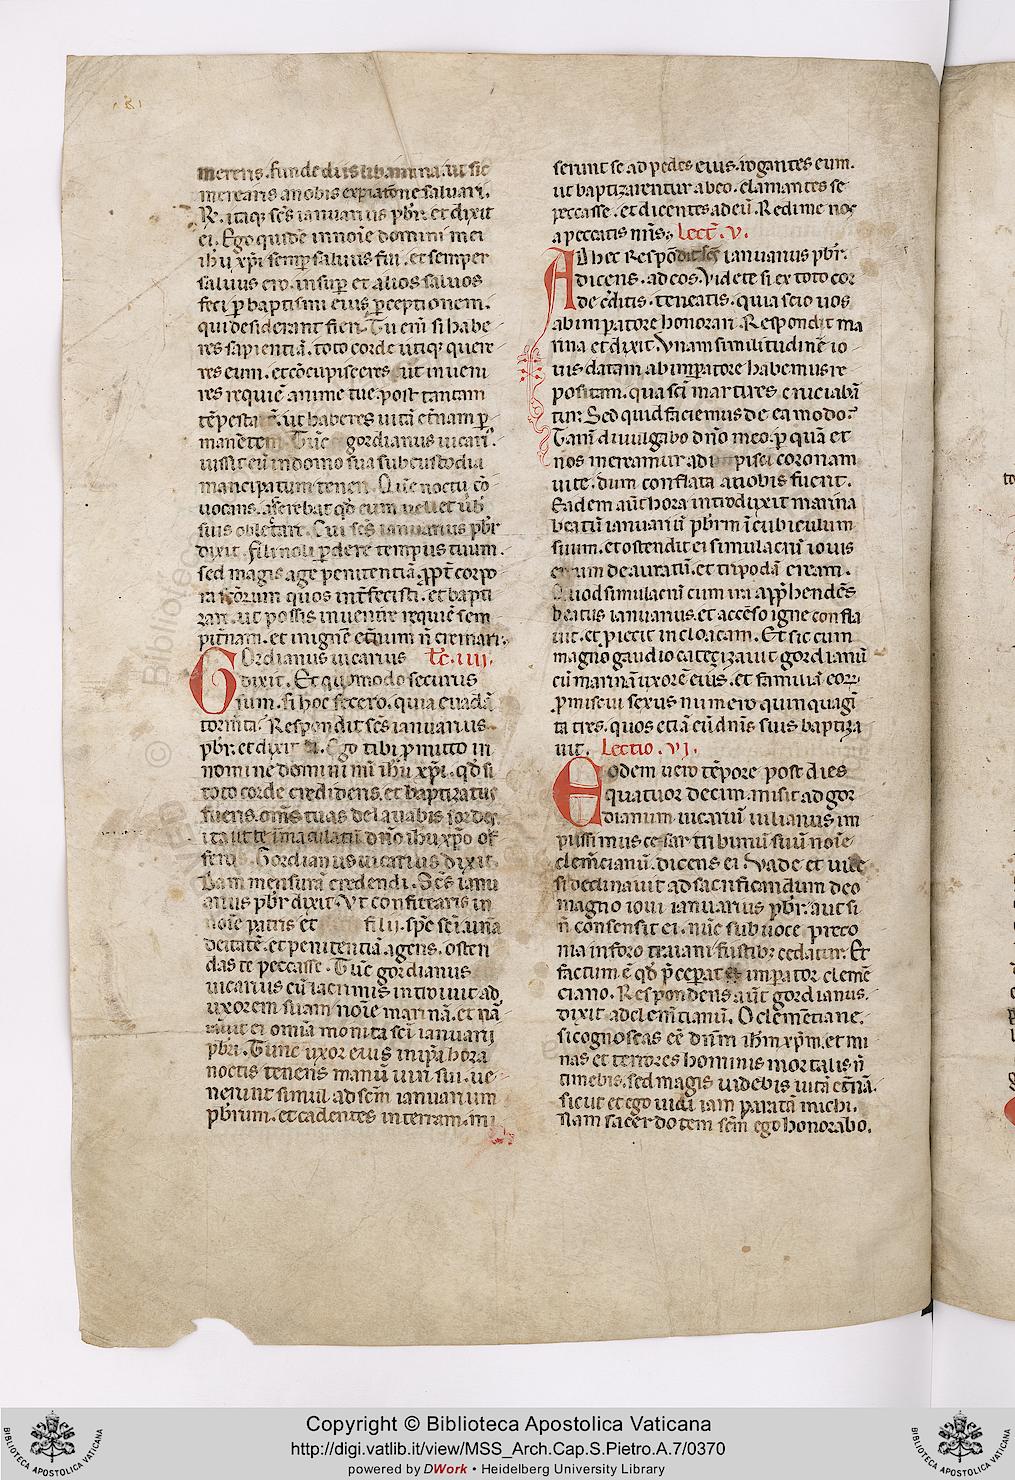 181
mereris. funde diis libamina. ut sic
merearis a nobis expiatōne saluari.
R. itaq; sc̄s ianuarius p̄br. et dixit
ei. Ego quidē in noīe domini mei
ih̄u xp̄i semp̱ saluus fui. et semper
saluus ero. insup̱ et alios saluos
feci p̱ baptismi eius p̱ceptionem.
qui desiderant fieri. Tu em̄ si habe
res sapientiā. toto corde utiq; quere
res eum. et cōcupisceres. ut inueni
res requiē anime tue. post tantam
tēpestatē. ut haberes uitā et̄nam p̱
manētem. Tūc gordianus uicari
iussit eū in domo sua sub custodia
mancipatum teneri. Quē noctu cō
uocans. aserebat qd̄ eum uellet
suis oblectari. Cui sc̄s ianuarius p̄br
dixit. fili noli p̱dere tempus tuum.
sed magis age penitentiā. p̱pt̄ corpo
ra sc̄orum quos int̄fecisti. et bapti
zare. ut possis inuenire requiē sem
pit̄nam. et in ignē et̄num n̄ cremari.
Gordianus uicarius lc̄. iiij.
dixit. Et quomodo securus
sum. si hoc fecero. quia euadā
torm̄ta. Respondit sc̄s ianuarius
p̄br. et dixit ei. Ego tibi p̱mitto in
nomine domini mī ih̄u xp̄i. qd̄ si
toto corde credideris. et baptizatus
fueris. om̄s tuas delauabis sordes
ita ut te īmaculatū dn̄o ih̄u xp̄o of
feru. Gordianus uicarius dixit.
Nam mensurā credendi. Sc̄s ianu
arius p̄br dixit. Vt confitearis in
noīe patris et filij. sp̄c sc̄i. unā
deitatē. et penitentiā agens. osten
das te peccasse. Tūc gordianus
uicarius cū lacrimis introiuit ad
uxorem suam noīe marinā. et nā
rauit ei omnia monita sc̄i ianuarij
p̄bri. Tunc uxor eius in ip̄a hora
noctis tenens manū uiri sui. ue
nerunt simul ad sc̄m ianuarium
p̄brum. et cadentes in terram. mi
serunt se ad pedes eius. rogantes eum.
ut baptizarentur ab eo. clamantes se
peccasse. et dicentes ad eū. Redime nos
a peccatis nr̄is. Lect̄. v.
Ad hec Respōdit sc̄s ianuarius p̄br.
dicens. ad eos. Videte si ex toto cor
de c̄ditis. teneatis. quia scio uos
ab imperatore honorari. Respondit ma
rina et dixit. Vnam similitudinē io
uis datam ab imp̱atore habemus re
positam. qua sc̄i martires cruciabā
tur. Sed quid faciemus de ea modo?
Tam̄ diuulgabo dn̄o meo. p̱ quā et
nos mereamur adipisci coronam
uite. dum conflata a nobis fuerit.
Eadem aūt hora introduxit marina
beatū ianuariū p̄brm ī cubiculum
suum. et ostendit ei simulacrū iouis
ereum deauratū. et tripodā eream.
Quod simulacrū cum ira app̱hendēs
beatus ianuarius. et accēso igne confla
uit. et piecit in cloacam. Et sic cum
magno gaudio catetizauit gordianū
cū marinā uxorē eius. et familiā eorū
p̱miscui sexus numero quinquagī
ta tres. quos etiā cū dn̄is suis baptiza
uit. Lectio. vj.
Eodem uero tēpore post dies
quatuor decim. misit ad gor
dianum uicariū iulianus im
piissimus cesar tribunū suū noīe
clem̄cianū. dicens ei. Vade et uide
si declinauit ad sacrificandum deo
magno ioui ianuarius p̄br. aut si
n̄ consensit ei. nūc sub uoce preco
nia in foro traiani fustib; cedatur. Et
factum ē qd̄ p̄ceperat imp̱ator clemē
ciano. Respondens aūt gordianus.
dixit ad clem̄tianū. O clemētiane.
si cognoscas eē dn̄m ih̄m xp̄m. et mi
nas et terrores hominis mortalis n̄
timebis. sed magis uidebis uitā et̄nā.
sicut et ego uidi iam paratā michi.
Nam sacerdotem sc̄m ego honorabo.
Copyright © Biblioteca Apostolica Vaticana
http://digi.vatlib.it/view/MSS_Arch.Cap.S.Pietro.A.7/0370
powered by DWork • Heidelberg University Library
BIBLIOTECA APOSTOLICA VATICANA
BIBLIOTECA APOSTOLICA VATICANA